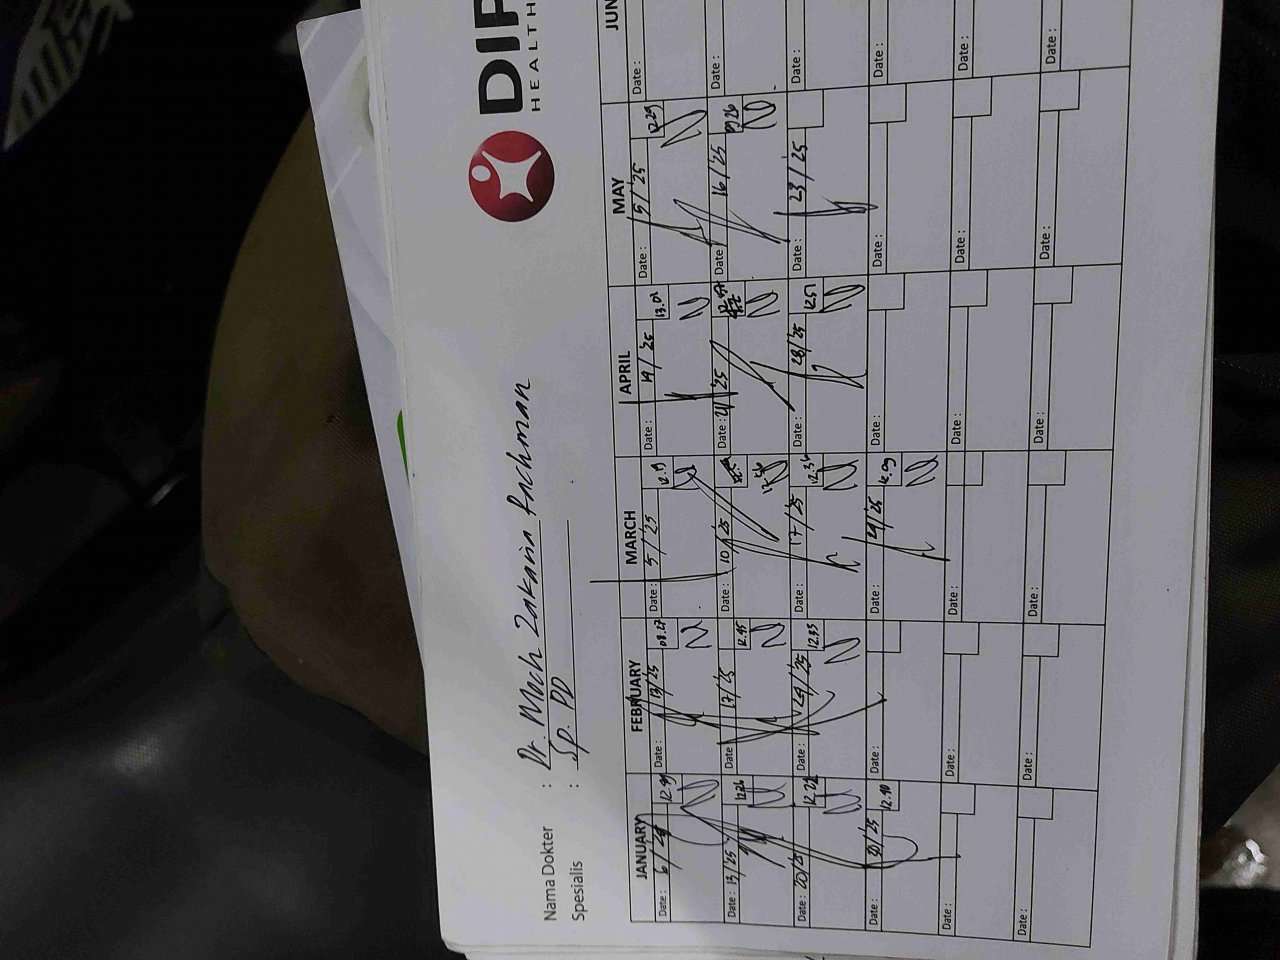 DIP
HEALTH
Nama Dokter : Dr. Moch Zakaria Rachman
Spesialis : Sp. PD
JANUARY FEBRUARY MARCH APRIL MAY JUN
Date : 6/ 12.39 Date : 13/25 08.27 Date : 5/25 12.19 Date : 14/25 13.02 Date : 5/25 12.29 Date :
Date : 13/25 12.26 Date : 17/25 12.45 Date : 10/25 12.56 Date : 21/25 Date : 16/25 Date :
Date : 20/25 12.22 Date : 24/25 12.33 Date : 17/25 12.36 Date : 28/25 12.51 Date : 23/25 Date :
Date : /25 12.40 Date : Date : 12.09 Date : Date : Date :
Date : Date : Date : Date : Date : Date :
Date : Date : Date : Date : Date : Date :